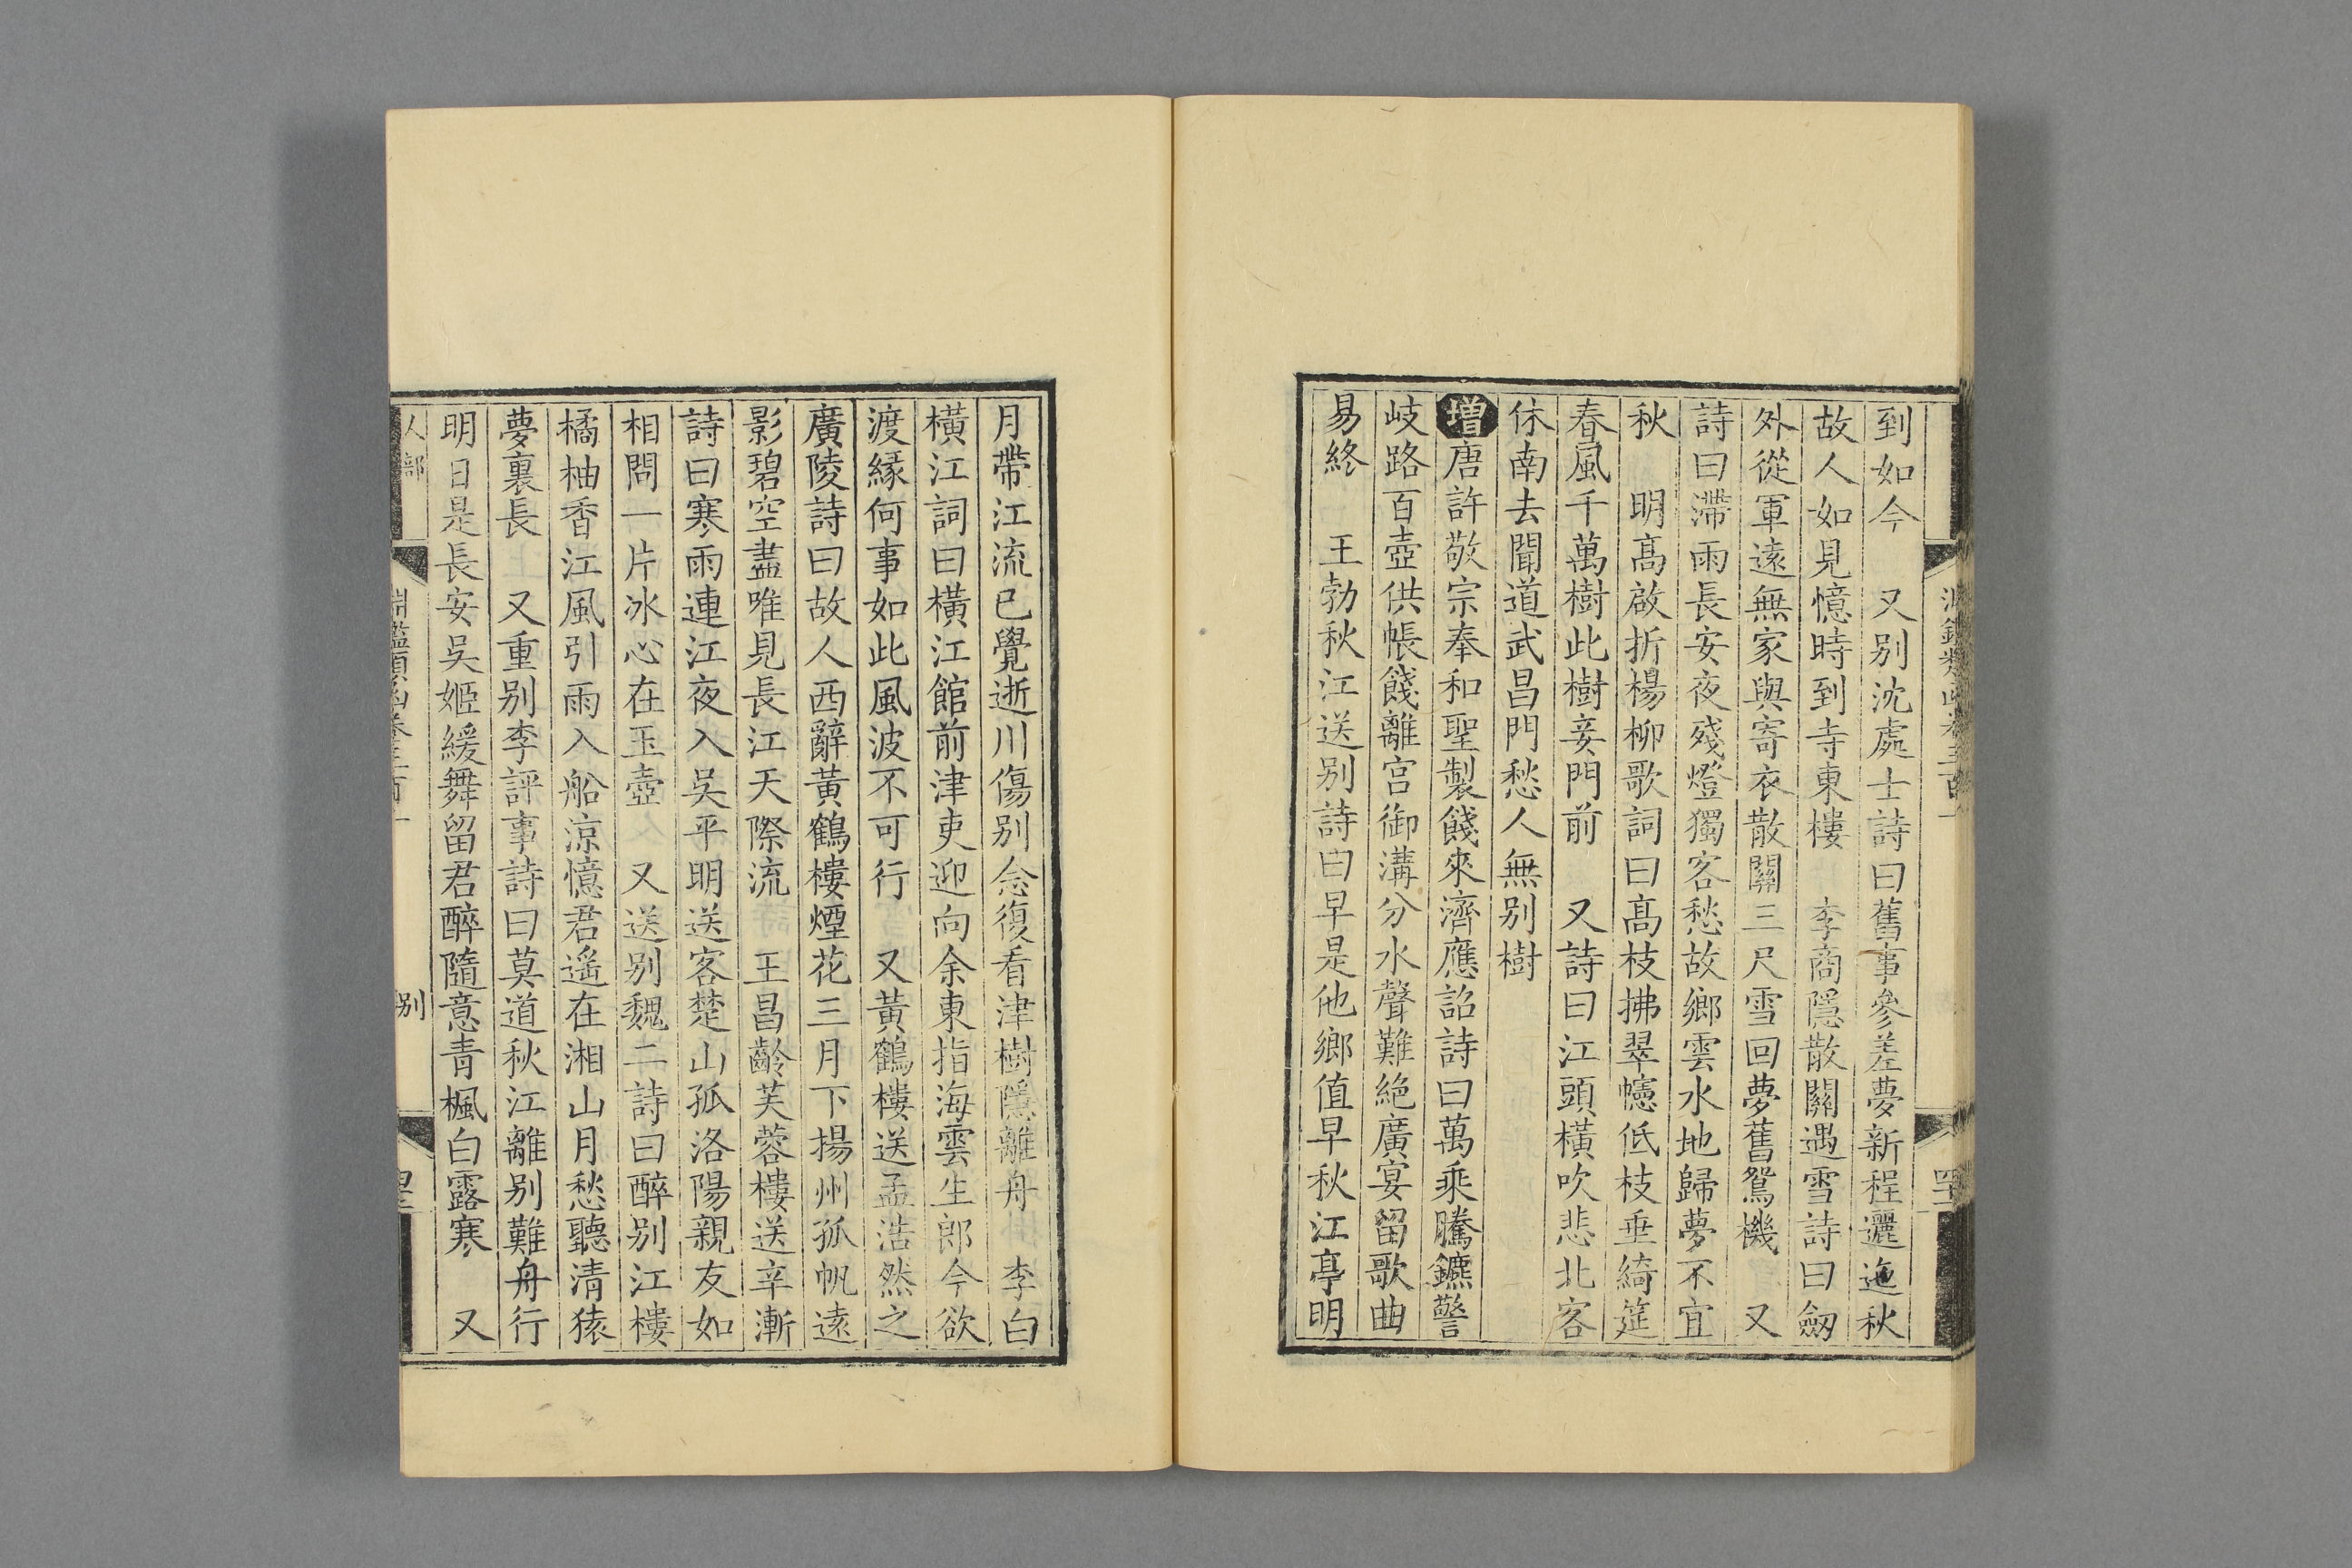 到如今　又别沈處士詩曰舊事參差夢新程邐迤秋
故人如見憶時到寺東樓　李商隱散關遇雪詩曰劔
外從軍遠無家與寄衣散關三尺雪回夢舊鴛機　又
詩曰滯雨長安夜殘燈獨客愁故鄉雲水地歸夢不宜
秋　明高啟折楊柳歌詞曰高枝拂翠幰低枝垂綺筵
春風千萬樹此樹妾門前　又詩曰江頭橫吹悲北客
休南去聞道武昌門愁人無别樹
增唐許敬宗奉和聖製餞來濟應詔詩曰萬乘騰鑣警
岐路百壺供帳餞離宮御溝分水聲難絶廣宴留歌曲
易終　王勃秋江送别詩曰早是他鄉值早秋江亭明
月帶江流已覺逝川傷别念復看津樹隱離舟　李白
橫江詞曰橫江館前津吏迎向余東指海雲生郎今欲
渡緣何事如此風波不可行　又黃鶴樓送孟浩然之
廣陵詩曰故人西辭黃鶴樓煙花三月下揚州孤帆遠
影碧空盡唯見長江天際流　王昌齡芙蓉樓送辛漸
詩曰寒雨連江夜入吳平明送客楚山孤洛陽親友如
相問一片冰心在玉壺　又送别魏二詩曰醉别江樓
橘柚香江風引雨入船涼憶君遙在湘山月愁聽清猿
夢裏長　又重别李評事詩曰莫道秋江離别難舟行
明日是長安吳姬緩舞留君醉隨意青楓白露寒　又
人部　淵鑑類函卷三百一　别